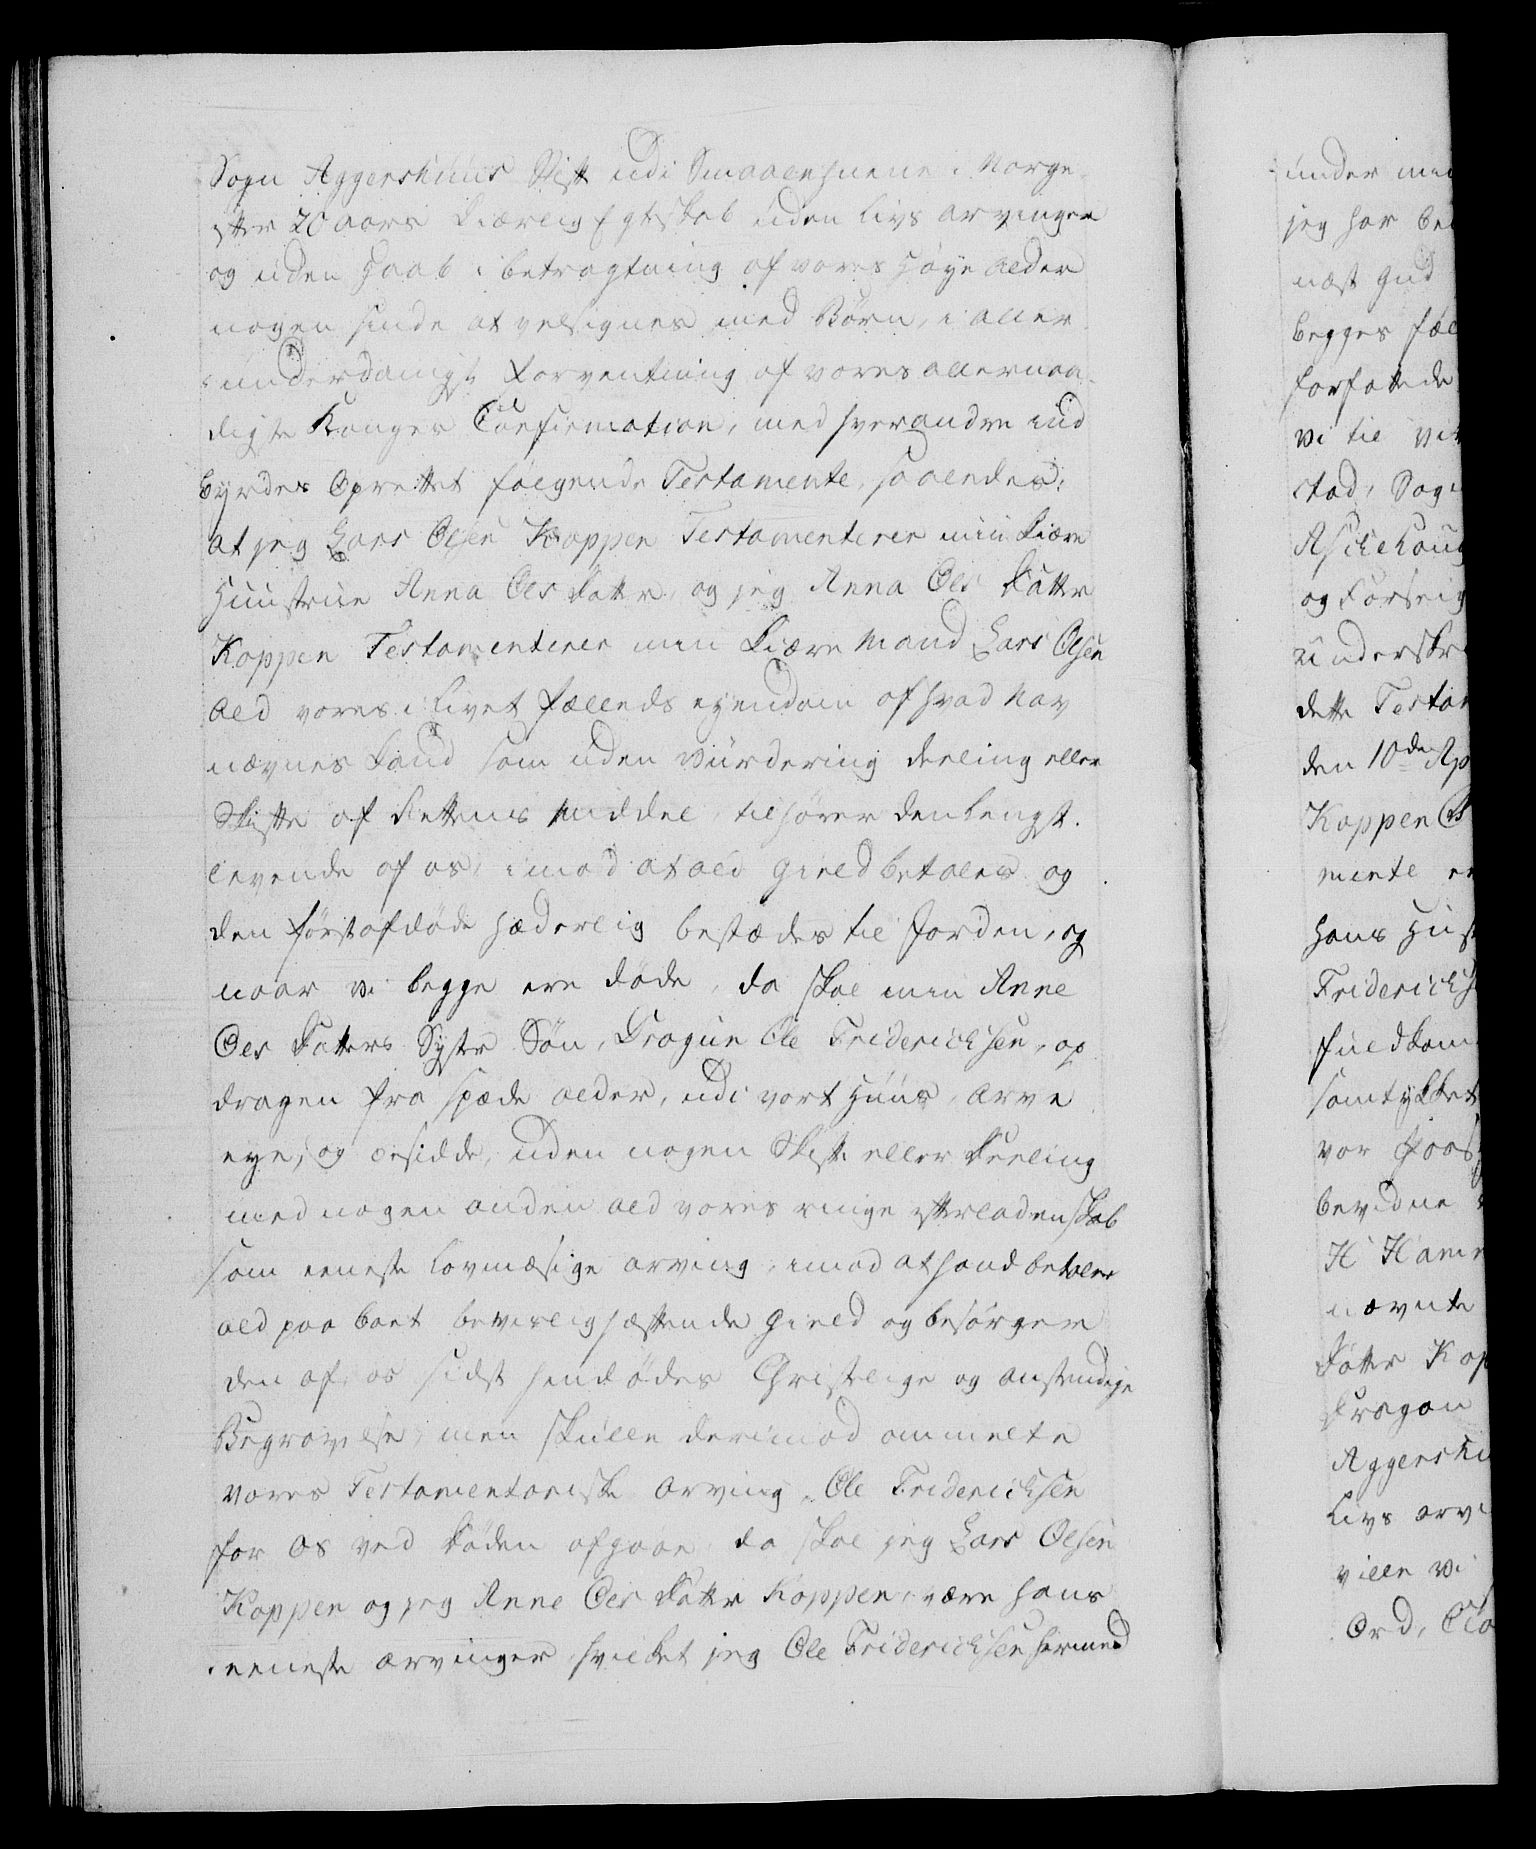 Sogn Aggershuus Stift udi Smaalehnene i Norge,
efter 20 aars kiærlig Egteskab uden Livs arvinger
og uden Haab i betragtning af vores Høye alder
nogen sinde at velsignes med Børn, i aller
underdanigst Forventning af vores allernaa-
digste Konges Confirmation, med hverandre ind
byrdes Oprettet følgende Testamente, saaledes:
at jeg Lars Olsen Koppen Testamenterer min kiære
Huustrue Anna Ols Datter, og jeg Anna Ols Datter
Koppen Testamenterer min kiære Mand Lars Olsen
ald vores i Livet fælleds eyendom af hvad Nav
nævnes kand som uden Vurdering deeling eller
Skifte af Rettens Middel, tilhører den Længst-
levende af os, imod at ald Gield betales og
den førstafdøde hæderlig bestædes til Jorden, og
naar vi begge ere døde, da skal min Anne
Ols Datters Syster Søn, Dragun Ole Friderichsen, op
dragen fra spæde alder, udi vort Huus, arve
eye, og besidde, uden nogen Skifte eller Deeling
med nogen anden ald vores ringe efterladenskab
som eeneste Lovmæsige arving, imod at hand betaler
ald paa boet beviislig hæftende Gield og besørger
den af os sidst hendødes Christelige og anstendige
Begravelse, men skulle derimod ommelte
vores Testamentariske arving, Ole Friderichsen
for os ved Døden afgaae, da skal jeg Lars Olsen
Koppen og jeg Anne Ols Datter Koppen, være hans
eeneste arvinger hvilket jeg Ole Friderichsen hermed
under min
jeg har
næst Gud
begges
forfattede
vi til
stad, Sogn
Aschehoug
og Forseig
underskre
dette Testam
den 10de Ap
Koppen
mente
Hans Hust
Friderichs
fuldkom
samtykket
vor
bevidne
H Ham
nævnte
Datter Kop
Dragon
Aggershu
Livs arvi
ville vi
Ord,